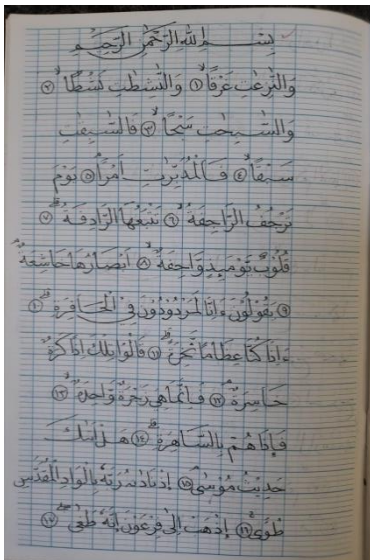 بِسْمِ اللهِ الرَّحْمٰنِ الرَّحِيْمِ
وَالنّٰزِعٰتِ غَرْقًا ١ وَالنّٰشِطٰتِ نَشْطًا ٢
وَالسّٰبِحٰتِ سَبْحًا ٣ فَالسّٰبِقٰتِ
سَبْقًا ٤ فَالْمُدَبِّرٰتِ اَمْرًا ٥ يَوْمَ
تَرْجُفُ الرَّاجِفَةُ ٦ تَتْبَعُهَا الرَّادِفَةُ ٧
قُلُوْبٌ يَّوْمَىِٕذٍ وَّاجِفَةٌ ٨ اَبْصَارُهَا خَاشِعَةٌ
٩ يَقُوْلُوْنَ ءَاِنَّا لَمَرْدُوْدُوْنَ فِى الْحَافِرَةِ ١٠
ءَاِذَا كُنَّا عِظَامًا نَّخِرَةً ١١ قَالُوْا تِلْكَ اِذًا كَرَّةٌ
خَاسِرَةٌ ١٢ فَاِنَّمَا هِيَ زَجْرَةٌ وَّاحِدَةٌ ١٣
فَاِذَا هُمْ بِالسَّاهِرَةِ ١٤ هَلْ اَتٰىكَ
حَدِيْثُ مُوْسٰى ١٥ اِذْ نَادٰىهُ رَبُّهٗ بِالْوَادِ الْمُقَدَّسِ
طُوًى ١٦ اِذْهَبْ اِلٰى فِرْعَوْنَ اِنَّهٗ طَغٰى ١٧